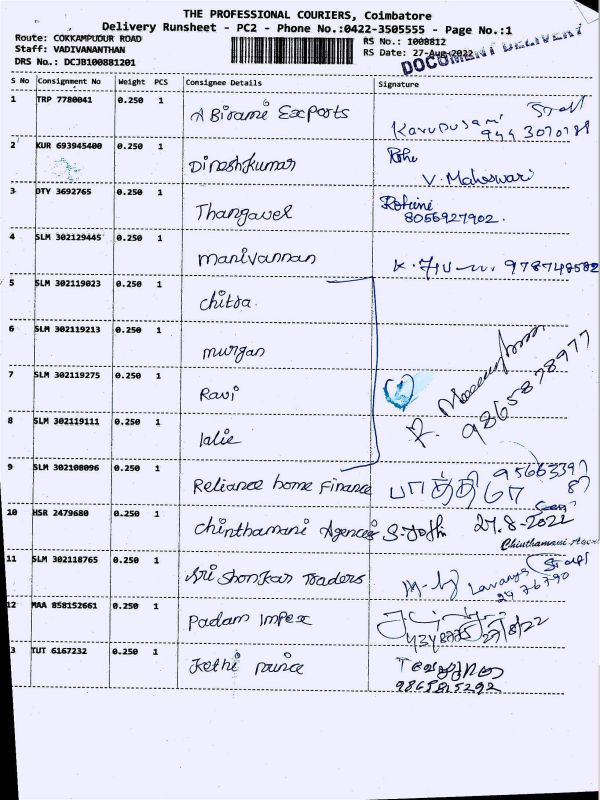 THE PROFESSIONAL COURIERS, Coimbatore
Delivery Runsheet - PC2 - Phone No.:0422-3505555 - Page No.:1
Route: COKKAMPUDUR ROAD
RS No.: 1008812
Staff: VADIVANANTHAN
RS Date: 27-Aug-2022
DOCUMENT DELIVERY
DRS No.: DCJB100881201
S No Consignment No Weight PCS Consignee Details Signature
1 TRP 7780041 0.250 1 Abirami Exports
2 KUR 693945400 0.250 1 Dineshkumar
V. Maheswari
3 DTY 3692765 0.250 1 Thangavel Rohini
8056927902.
4 SLM 302129445 0.250 1 manivannan 978748582
5 SLM 302119023 0.250 1 chitra
6 SLM 302119213 0.250 1 murgan
7 SLM 302119275 0.250 1 Ravi
9865878977
8 SLM 302119111 0.250 1 lalie
9 SLM 302108096 0.250 1 Reliance home finance
10 HSR 2479680 0.250 1 Chinthamani Agencies S. Jothi 27.8-2022
11 SLM 302118765 0.250 1 Sri Shankar Traders Lavanya
12 MAA 858152661 0.250 1 Padam Impex
27/8/22
3 TUT 6167232 0.250 1
9865815292